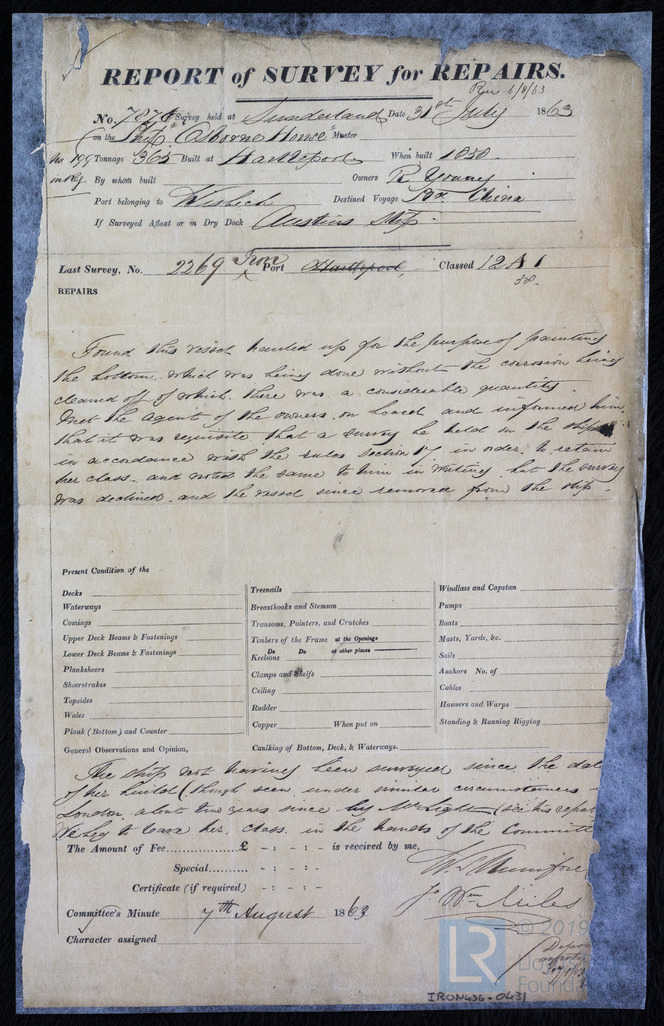 REPORT of SURVEY for REPAIRS.
Rec 6/8/63
No. 7874 Survey held at Sunderland Date 31st July 1863
on the Ship "Osborne House" Master
Tonnage 365 Built at Hartlepool When built 1858
in Reg.
By whom built Owners R. Young
Port belonging to Wisbech Destined Voyage China
If Surveyed Afloat or in Dry Dock Austins Slip
Last Survey, No. 2269 Iron Port Hartlepool, Classed 12 A 1
58.
REPAIRS
Found this vessel hauled up for the purpose of painting
the bottom, which was being done without the corrosion being
cleaned off of which there was a considerable quantity.
Met the agent of the owners on board and informed him
that it was requisite that a survey be held on the ship
in accordance with the rules section in order to retain
her class. and noted the same to him in writing, but the survey
was declined and the vessel since removed from the slip.
Present Condition of the
Decks
Waterways
Comings
Upper Deck Beams & Fastenings
Lower Deck Beams & Fastenings
Planksheers
Sheerstrakes
Topsides
Wales
Plank (Bottom) and Counter
Treenails
Breasthooks and Stemson
Transoms, Pointers, and Crutches
Timbers of the Frame at the Openings
Do Do at other places
Keelsons
Clamps and Shelfs
Ceiling
Rudder
Copper When put on
Windlass and Capstan
Pumps
Boats
Masts, Yards, &c.
Sails
Anchors No. of
Cables
Hawsers and Warps
Standing & Running Rigging
General Observations and Opinion, Caulking of Bottom, Deck, & Waterways.
The ship not having been surveyed since the dat
of her build (though seen under similar circumstances
London about two years since by Mr Light (see his repor
We beg to leave her class in the hands of the Committe
The Amount of Fee............£ - : - : - is received by me,
Special.......... - : - : -
Certificate (if required) - : - : -
Jo Wm Miles
Committee's Minute 7th August 1863
Character assigned
LR © 2019
Lloyd's
Founda
IRON436-0431